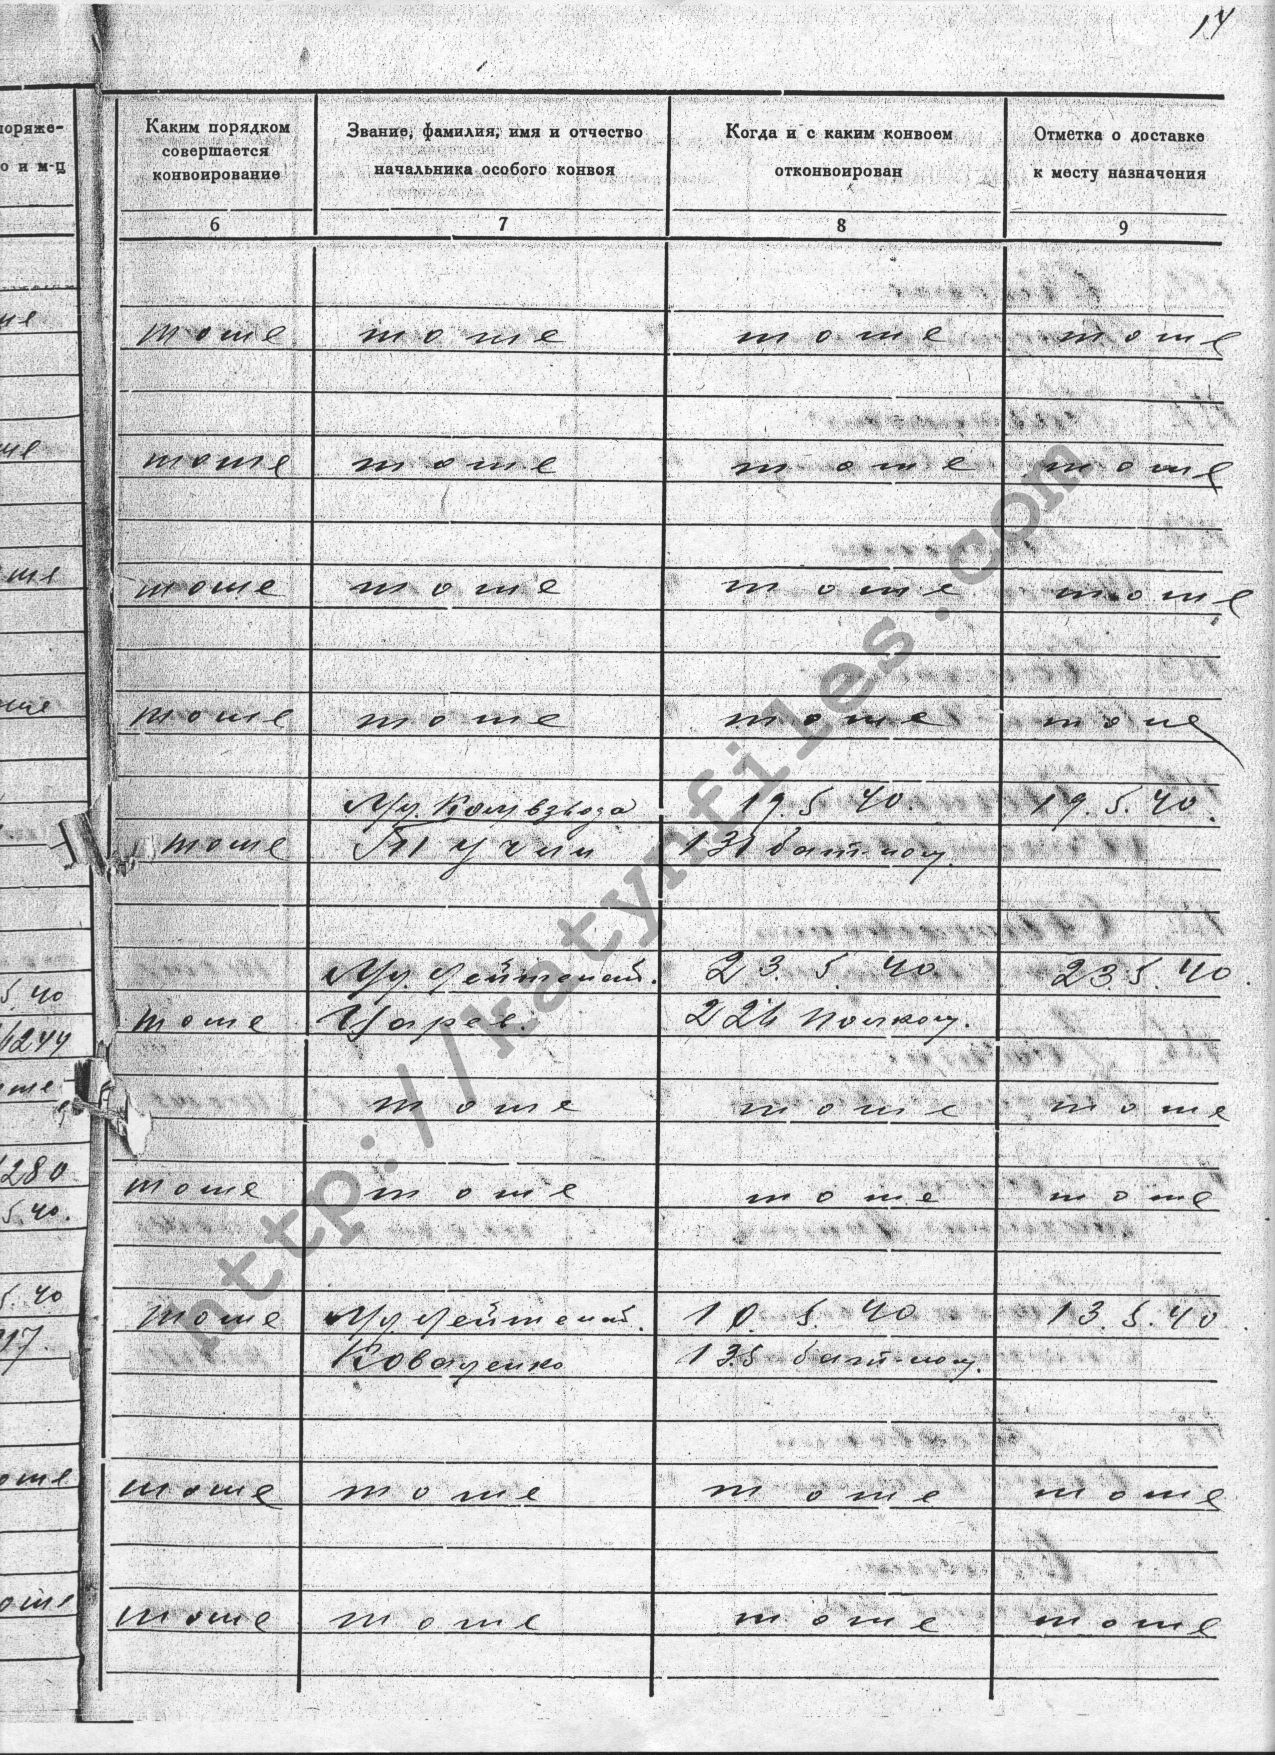 14
поряже-
о и м-ц
Каким порядком
совершается
конвоирование
Звание, фамилия, имя и отчество
начальника особого конвоя
Когда и с каким конвоем
отконвоирован
Отметка о доставке
к месту назначения
6 7 8 9
тоже тоже тоже тоже
тоже тоже тоже тоже
тоже тоже тоже тоже
тоже тоже тоже тоже
Мл. Комвзвода 19.5.40 19.5.40.
тоже 131 бат-ном.
5.40
Мл. Лейтенант. 23.5.40 23.5.40.
тоже Царев. 226 полком.
тоже тоже тоже
280
тоже тоже тоже тоже
5.40.
5.40
тоже Мл. Лейтенант. 10.5.40 13.5.40.
17.
Коваленко 135 бат-ном.
тоже тоже тоже тоже
тоже тоже тоже тоже
http://katynfiles.com